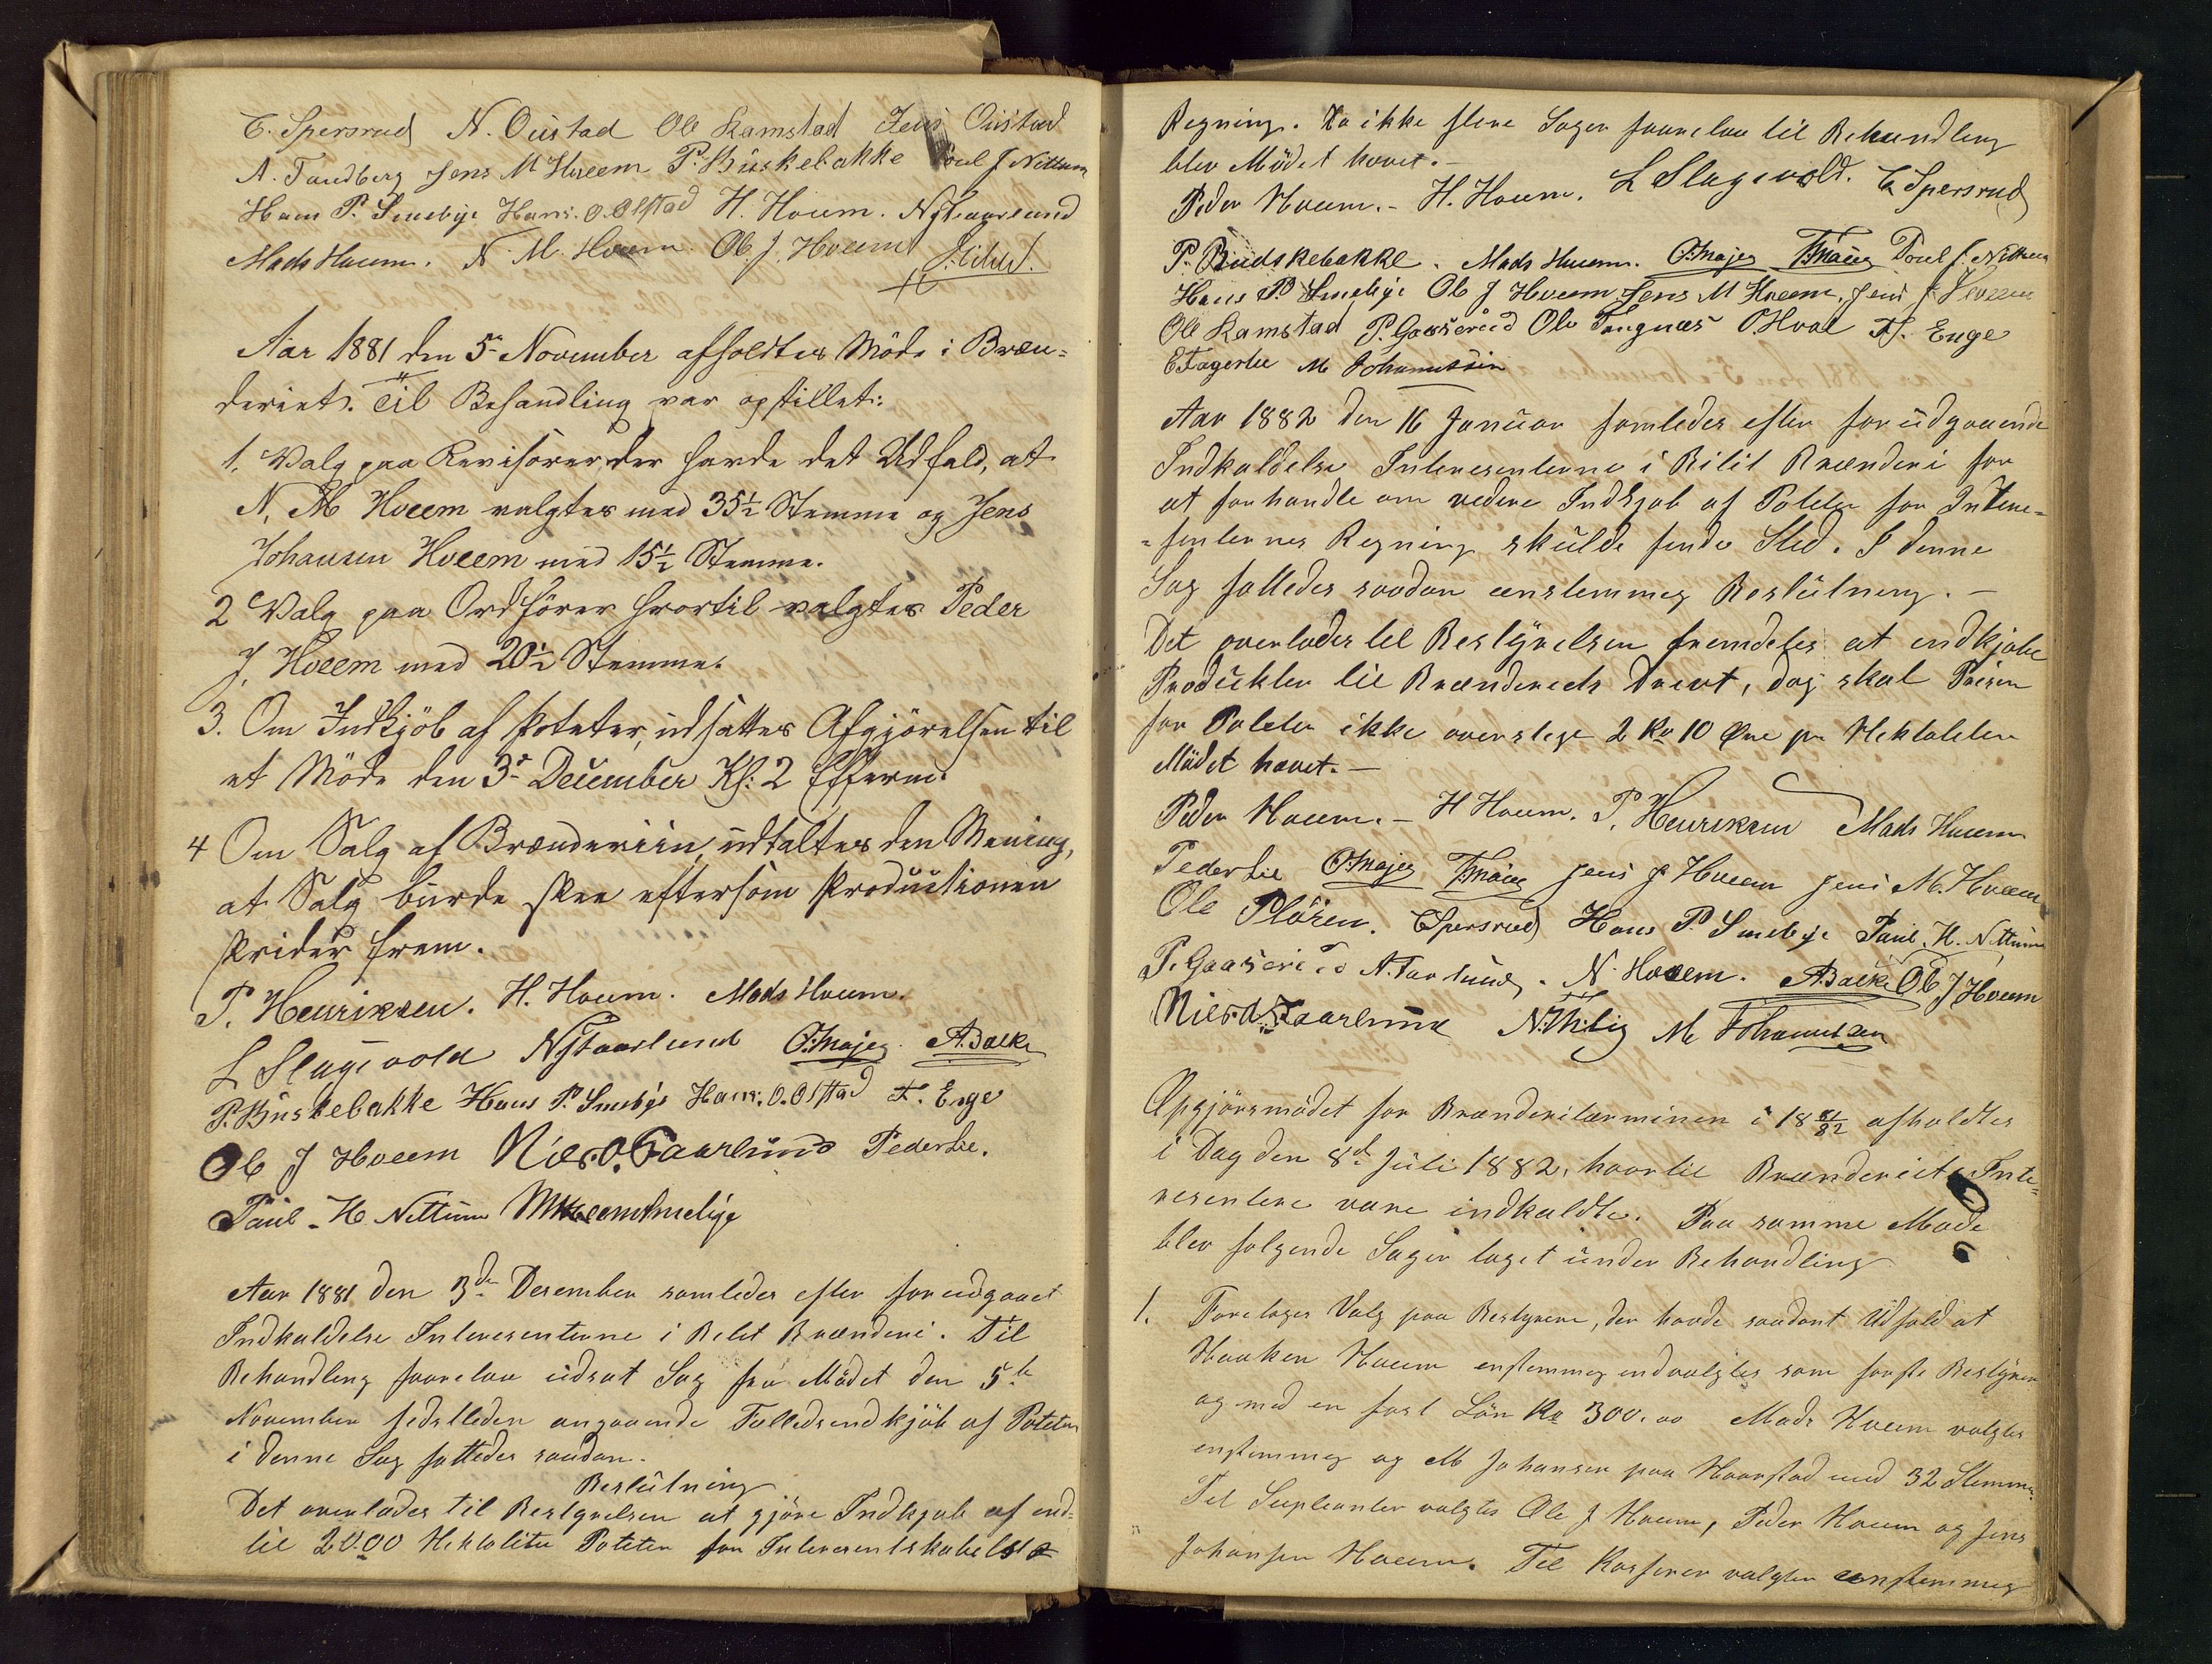 C. Spersrud N. Oustad Ole Ramstad Jens Oustad
A. Sandberg Jens M Hveem P. Buskebakke Poul J Nettum
Hans P. Smebye Hans. O. Olstad H. Hveem. N Staarlund
Mads Hveem. N. M. Hveem. Ole J. Hveem
Aar 1881 den 5te November afholdtes Möde i Bræn=
deriet. Til Behandling var opstillet:
1. Valg paa Revisorer, der havde det Udfald, at
N. M Hveem valgtes med 35½ Stemme og Jens
Johansen Hveem med 15½ Stemme.
2 Valg paa Ordförer hvortil valgtes Peder
J. Hveem med 20½ Stemme.
3. Om Indkjöb af Poteter, udsattes Afgjörelsen til
et Möde den 3die December Kl: 2 Efterm.
4 Om Salg af Brænderiin udtaltes den Mening,
at Salg burde skee eftersom Productionen
skrider frem.
P. Henriksen. H. Hveem. Mads Hveem.
L Slagsvold N Staarlund O. Majer A. Balke
P. Buskebakke Hans P. Smebye Hans. O. Olstad F. Enge
Ole J Hveem Niels. O. Taarlund Peder Lie.
Paul. H Nettum
Aar 1881 den 3de Desember samledes efter forudgaaet
Indkaldelse Interesenterne i Belit Brænderi. Til
Behandling foorelaa udsat Sag fra Mödet den 5te
November sidstleden angaaende Fælledsindkjöb af Poteter
i denne Sag fattedes saadan.
Beslutning
Det overlades til Bestyrelsen at gjöre Indkjöb af ind=
til 2000 Hektoliter Poteter for Interesentskabets
Regning. Da ikke flere Sager foorelaa til Behandling
blev Mödet hævet.-
Peder Hveem.- H. Hveem. L Slagsvold. C Spersrud
P. Rudskebakke. Mads Hveem. O. Majer Poul J. Nettum
Hans P Smebye Ole J Hveem Jens M Hveem. Jens J Hveem
Ole Ramstad P. Gaaserud Ole Tangnæs O. Hval F. Enge
E Fagerlie M Johannessen
Aar 1882 den 16 Januar samledes efter forudgaaende
Indkaldelse Interesenterne i Bilit Brænderi for
at forhandle om videre Indkjøb af Poteter for Intere=
=senternes Regning skulde finde Sted. I denne
Sag fattedes saadan enstemmig Beslutning.-
Det overlades til Bestyrelsen fremdeles at indkjøbe
Produkter til Brænderiets Drivt, dog skal Prisen
for Poteter ikke overstige 2 Kr 10 Øre pr Hektoliter
Mödet hævet.-
Peder Hveem.- H Hveem. P. Henriksen Mads Hveem
Peder Lie O. Majer Jens J Hveem Jens M. Hveem
Ole Plöien. C Spersrud Hans P. Smebye Paul. H. Nettum
P. Gaaserud N. Taarlund. N. Hveem. A. Balke Ole J Hveem
Niels. O. Taarlund M Johannessen
Opgjörsmödet for Brænderiterminen i 18 81/82 afholdtes
i Dag den 8de Juli 1882, hvortil Brænderiets Inte=
resentere vare indkaldte. Paa samme Mode
blev følgende Sager taget under Behandling
1. Foretages Valg paa Bestyrere, der havde saadant Udfald at
Haaken Hveem enstemmig indvalgtes som første Bestyrer
og med en fast Lön Kr 300.00 Mads Hveem valgtes
enstemmig og M Johansen paa Haarstad med 32 Stemmer
Til Supleanter valgtes Ole J Hveem, Peder Hveem og Jens
Johansen Hveem. Til Kasserer valgtes enstemmig